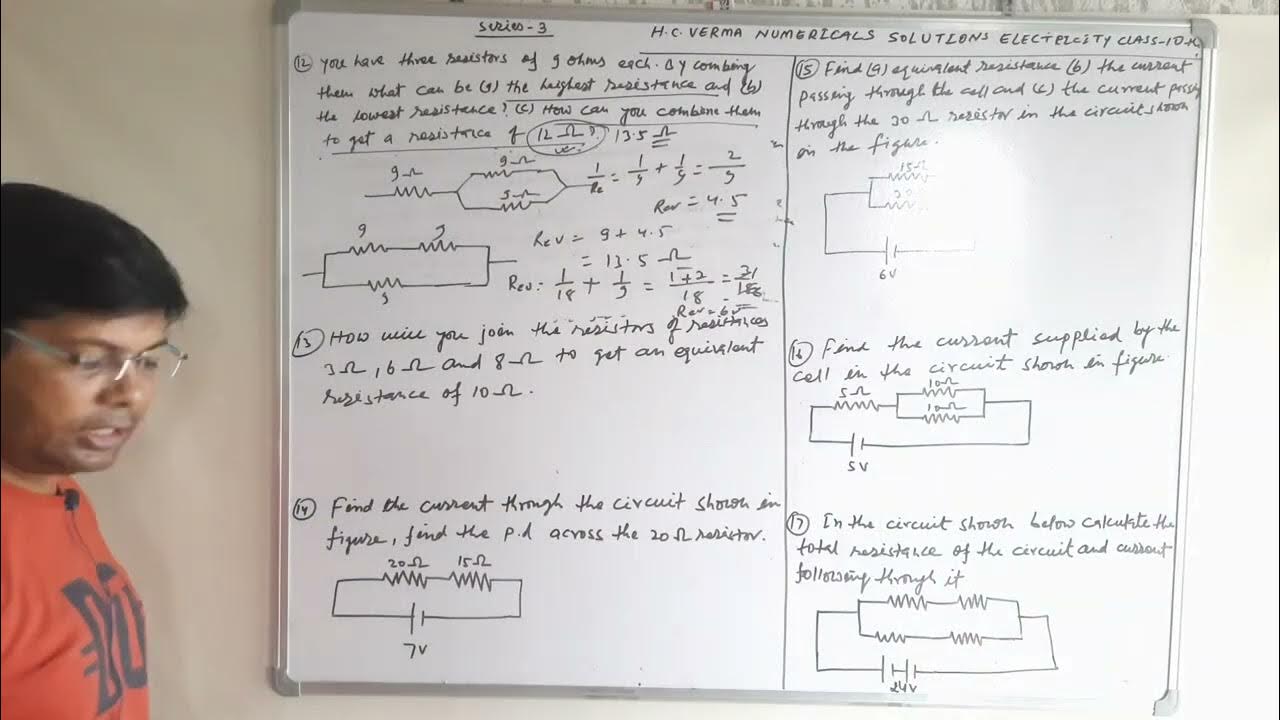 Series-3
H.C. VERMA NUMERICALS SOLUTIONS ELECTRICITY CLASS-10th
(12) You have three resistors of 9 ohms each. By combing
them what can be (a) the highest resistance and (b)
the lowest resistance? (c) How can you combine them
to get a resistance of 12Ω? 13.5Ω
9Ω
9Ω
9Ω
1/Re = 1/9 + 1/9 = 2/9
Rev = 4.5
Rev = 9 + 4.5
= 13.5 Ω
9 9
9
Rev: 1/18 + 1/9 = 1+2/18 =
Rev = 6
(13) How will you join the resistors of resistances
3Ω, 6Ω and 8Ω to get an equivalent
resistance of 10Ω.
(14) Find the current through the circuit shown in
figure, find the p.d across the 20Ω resistor.
20Ω 15Ω
7V
(15) Find (a) equivalent resistance (b) the current
passing through the cell and (c) the current
through the 30Ω resistor in the circuit shown
in the figure.
15Ω
6V
(16) Find the current supplied by the
cell in the circuit shown in figure.
5Ω
10Ω
10Ω
5V
(17) In the circuit shown below calculate the
total resistance of the circuit and current
following through it
24V